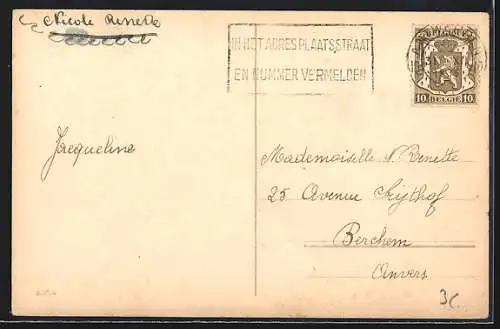 Nicole Renette
IN HET ADRES PLAATS STRAAT
EN NUMMER VERMELDEN
BELGIQUE
10 BELGIE 10
Jacqueline
Mademoiselle N. Renette
25 Avenue Sijthof
Berchem
Anvers
3€